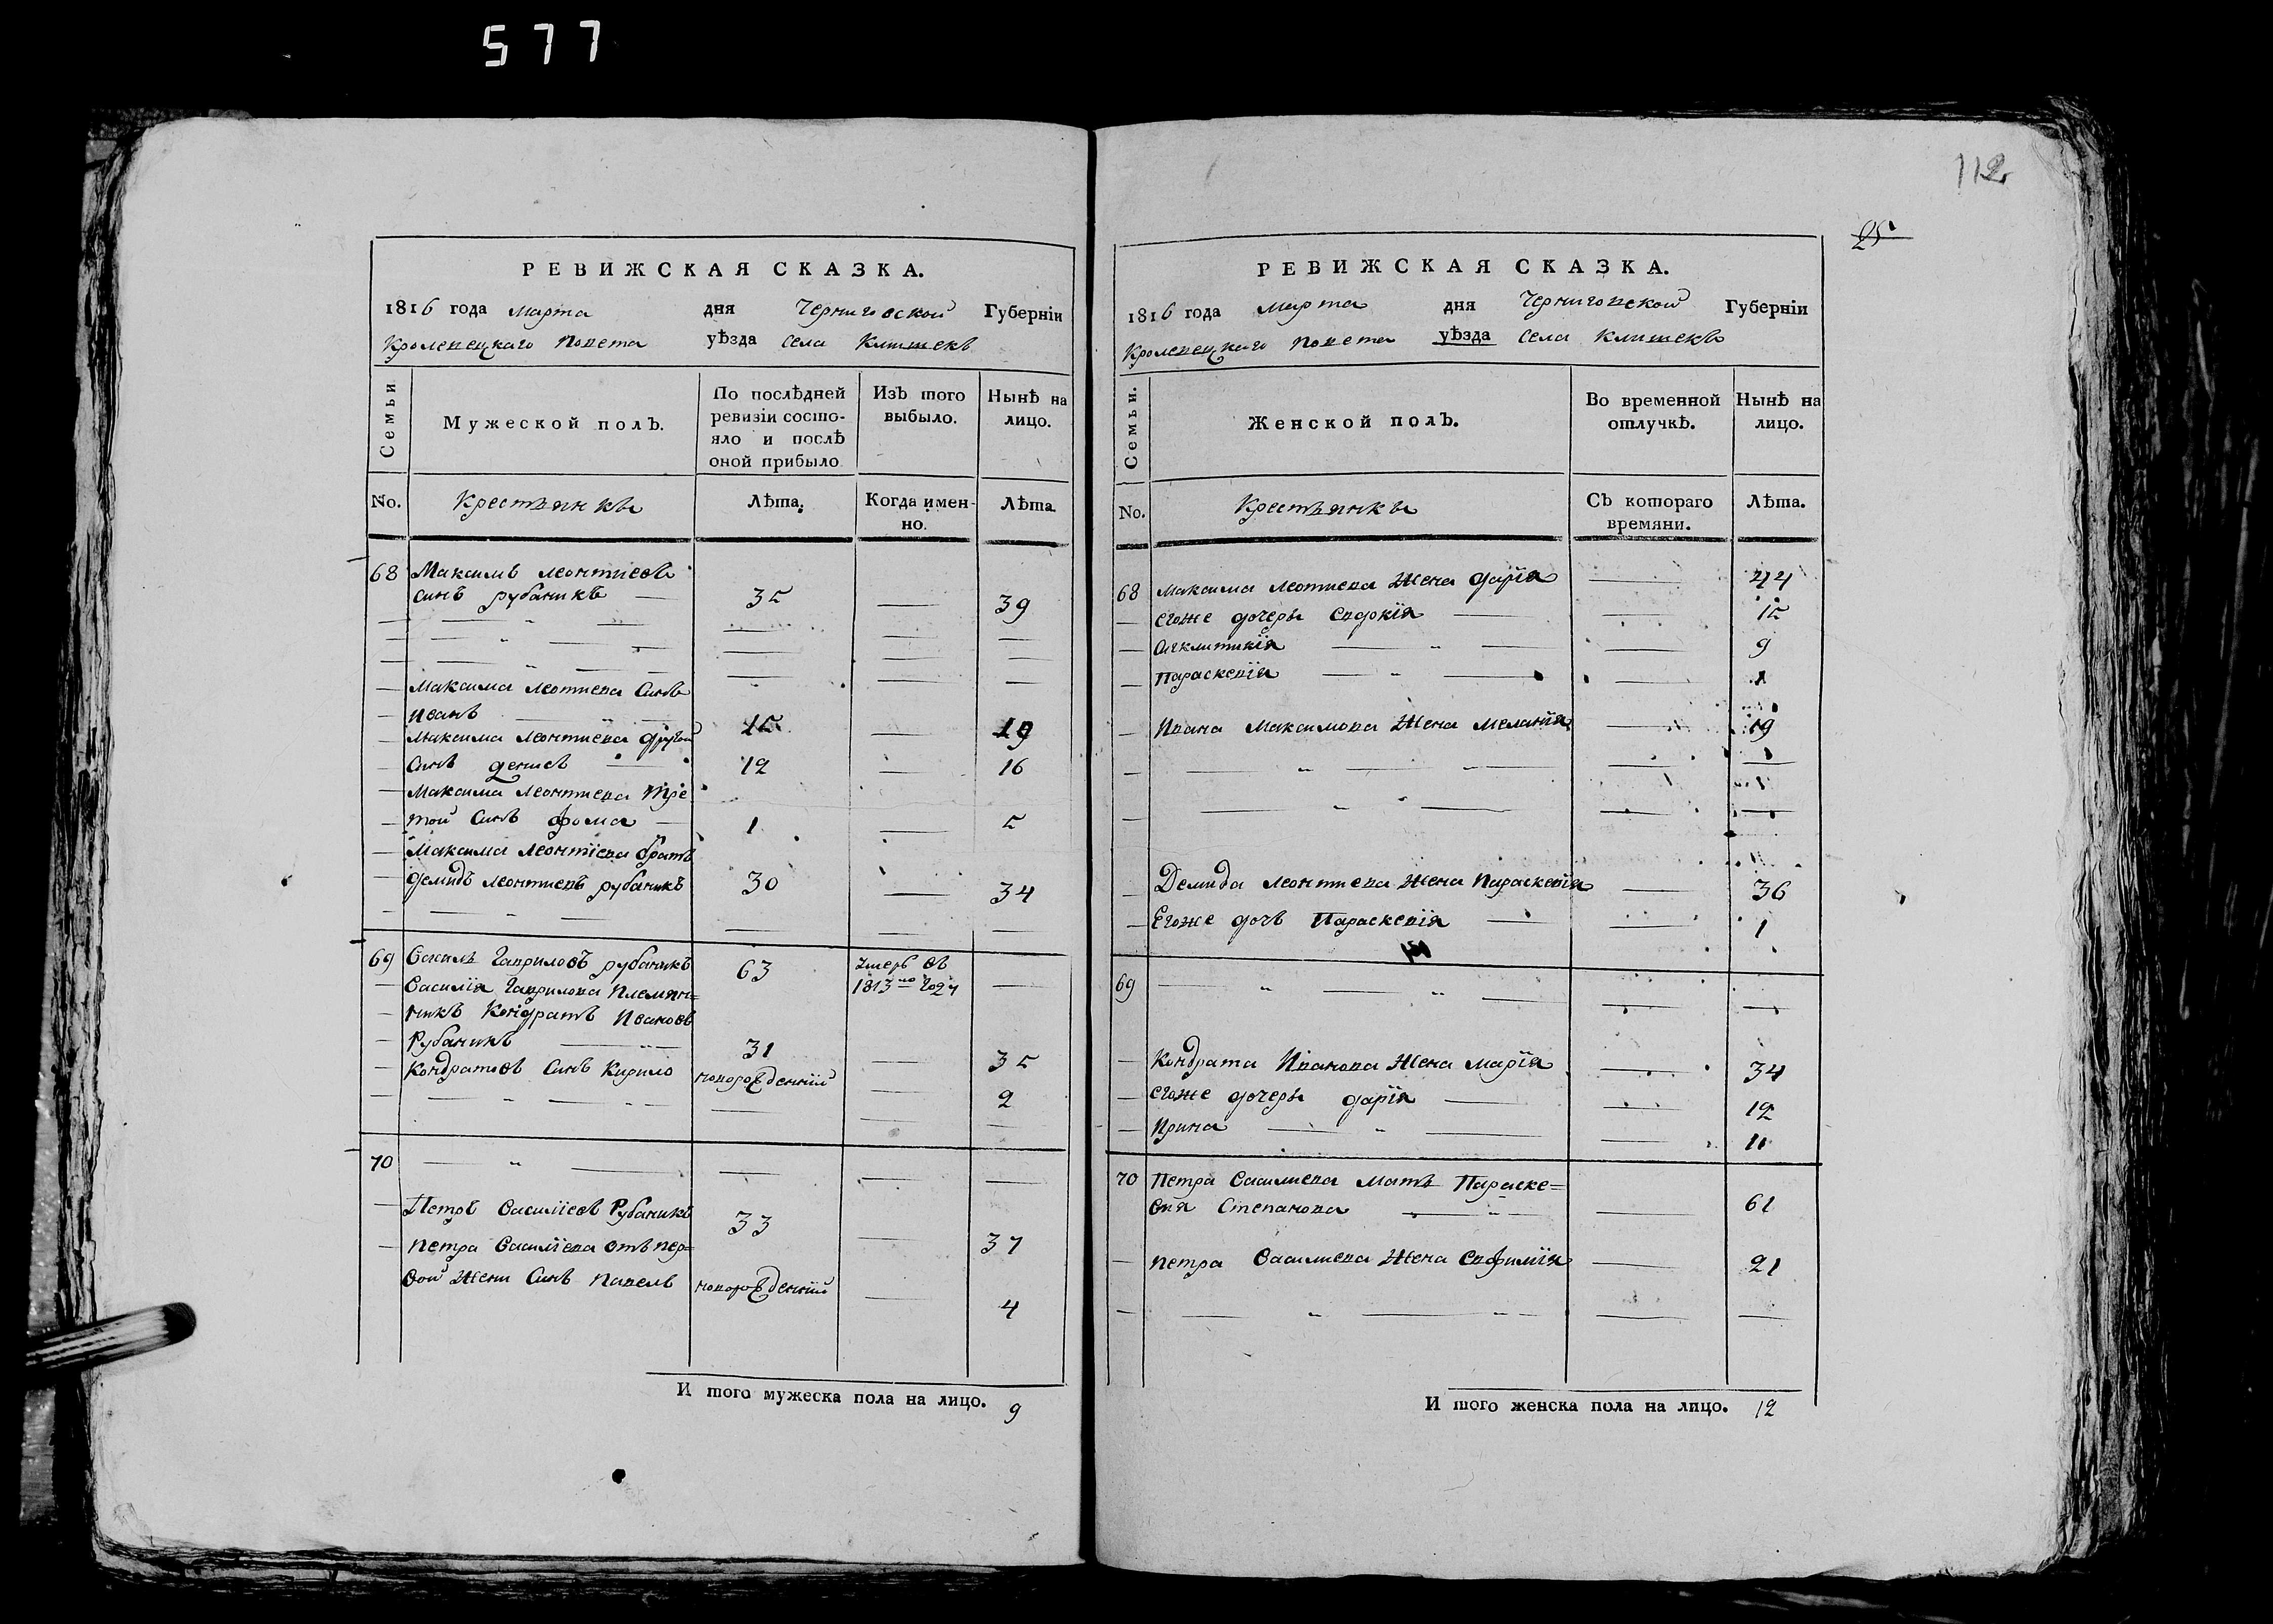 577
112
25
РЕВИЖСКАЯ СКАЗКА.
1816 года марта дня Черниговской Губерніи
Кролевецкаго Повета уѣзда села Клишекъ
Семьи
Мужеской полЪ.
По послѣдней ревизіи состояло и послѣ оной прибыло
ИзЪ того выбыло.
НынѢ на лицо.
No.
Лѣта.
Когда именно.
Лѣта
68 Максимъ леонтиевъ
синъ рубаникъ — 35 — 39
Максима леотиева Синъ
иванъ 15 — 19
Максима леонтиева другой
Синъ денисъ 12 — 16
Максима леонтиева тре
той Синъ фома — 1 — 5
Максима леонтїева братъ
демидъ леонтиевъ рубаникъ 30 — 34
69 Василь гавриловъ рубаникъ 63 умеръ въ 1813го году —
Василїя гаврилова племян=
никъ Кондратъ Ивановъ
Рубаникъ 31 — 35
Кондратовъ Синъ Кирило новорожденнїй — 2
70 — — — —
Петръ василїевъ Рубаникъ 33 — 37
петра василїева отъ пер=
вой жени Синъ павелъ новорожденнїй — 4
И того мужеска пола на лицо. 9
РЕВИЖСКАЯ СКАЗКА.
1816 года марта дня Черниговской Губерніи
Кролевецкаго повета уѣзда Села Клишекъ
Семьи.
Женской полЪ.
Во временной отлучкѢ.
НынѢ на лицо.
No.
СЪ котораго времяни.
Лѣта.
68 максима леотиева жена дарїя — 44
егоже дочеры евдокїя — 15
— 9
параскевїя — 1
ивана максимова жена меланїя — 19
Демида леонтиева жена параскевїя — 36
Егоже дочъ параскевїя — 1
69 — — —
Кондрата иванова жена марїя — 34
егоже дочеры дарїя — 12
ирина — 11
70 петра василиева мать параске=
вия степанова — 61
петра василиева жена евфимїя — 21
И того женска пола на лицо. 12